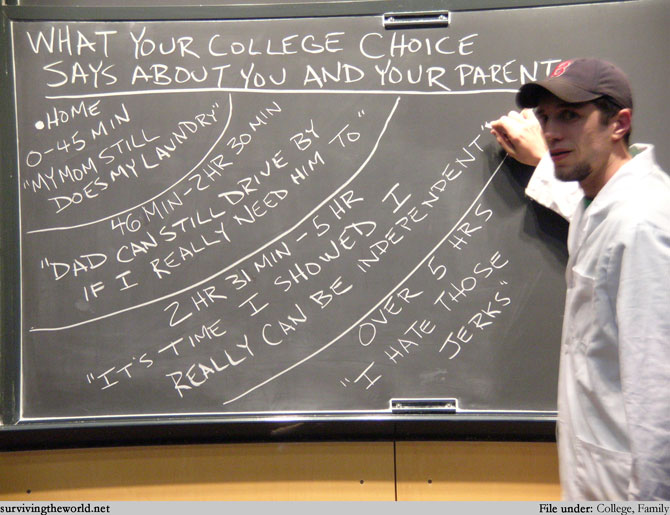 WHAT YOUR COLLEGE CHOICE
SAYS ABOUT YOU AND YOUR PARENT
•HOME
0-45 MIN
"MY MOM STILL
DOES MY LAUNDRY"
46 MIN-2HR 30 MIN
"DAD CAN STILL DRIVE BY
IF I REALLY NEED HIM TO"
2 HR 31 MIN - 5 HR
"IT'S TIME I SHOWED I
REALLY CAN BE INDEPENDENT"
OVER 5 HRS
"I HATE THOSE
JERKS"
B
survivingtheworld.net
File under: College, Family